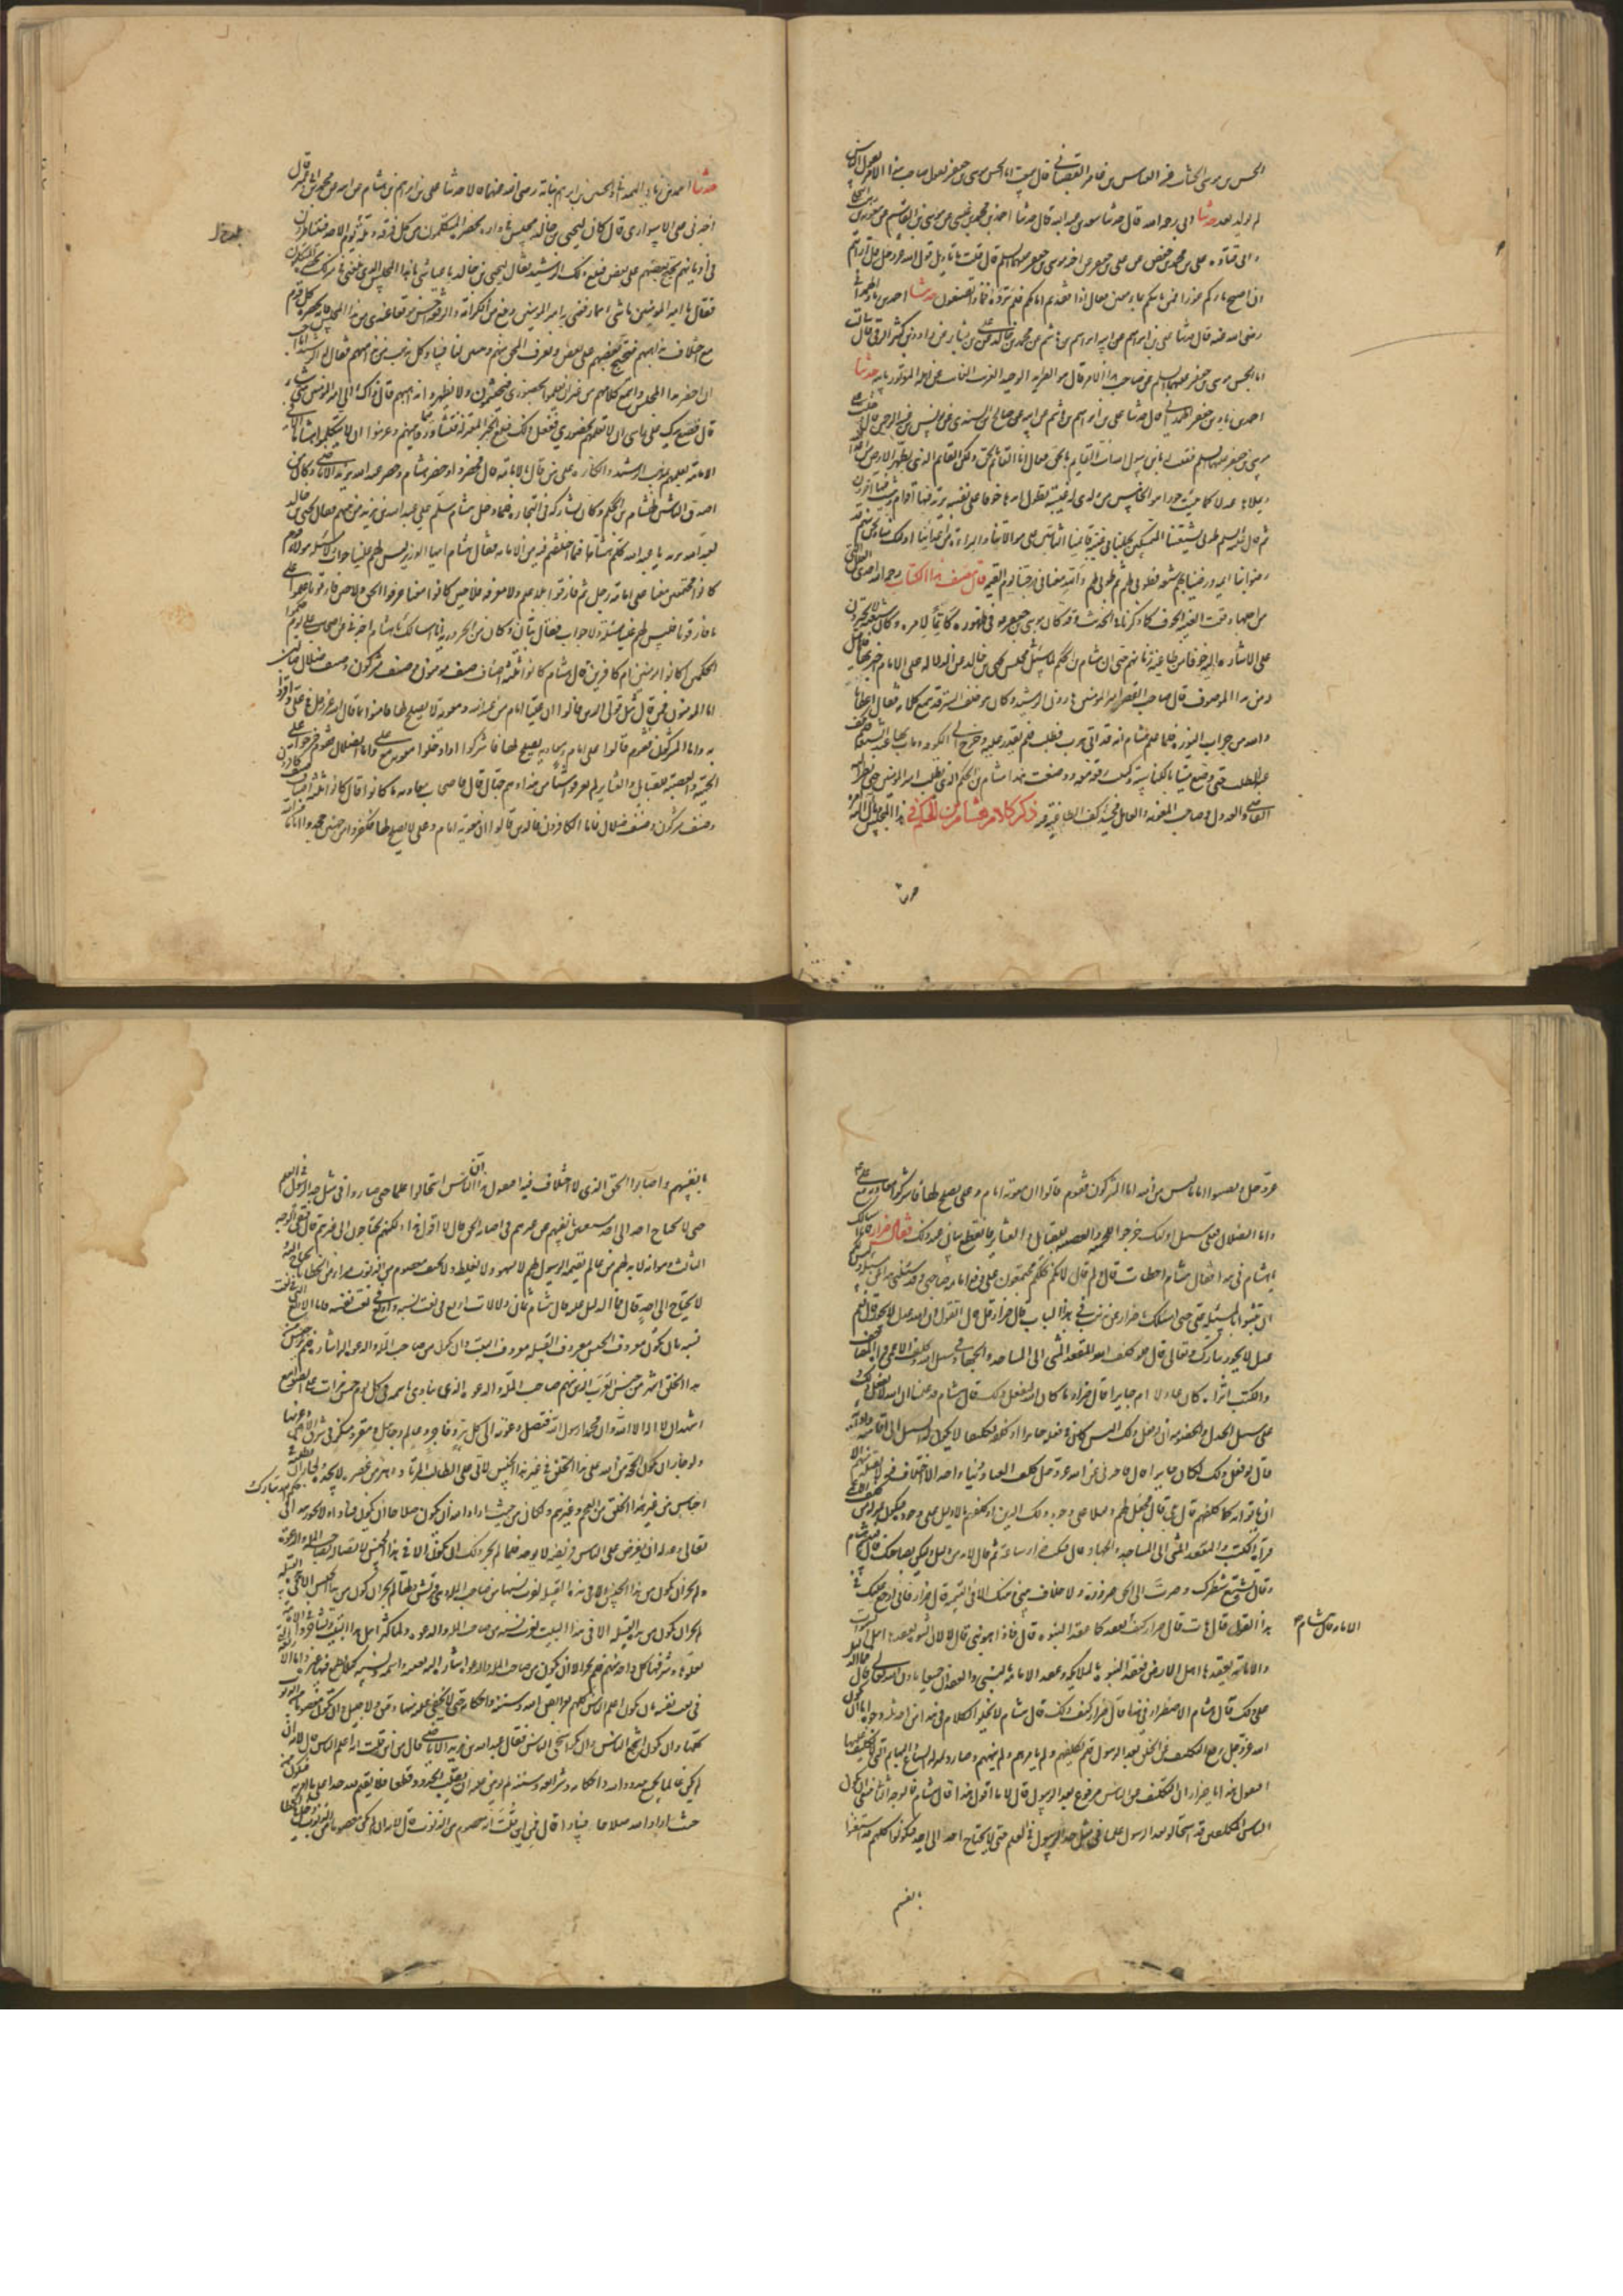 الحسن بن موسى الخشاب عن العباس بن عامر القصباني قال سمعت ابا الحسن موسى بن جعفر يقول صاحب هذا الامر يقول الناس
لم يولد بعد حدثنا ابي رحمه الله قال حدثنا سعد بن عبد الله قال حدثنا احمد بن محمد بن عيسى عن موسى بن القاسم عن معوية بن
وابي قتادة علي بن محمد بن حفص عن علي بن جعفر عن اخيه موسى بن جعفر عليهما السلم قال قلت ما تاويل قول الله عز وجل قل ارايتم
ان اصبح ماءكم غورا فمن ياتيكم بماء معين فقال اذا فقدتم امامكم فلم تروه فماذا تصنعون حدثنا احمد بن زياد الهمداني
رضي الله عنه قال حدثنا علي بن ابراهيم عن ابيه ابراهيم بن هاشم عن محمد بن خالد عن علي بن حسان عن داود بن كثير الرقي قال سالت
ابا الحسن موسى بن جعفر عليهما السلم عن صاحب هذا الامر قال هو الطريد الوحيد الغريب الغائب عن اهله الموتور بابيه حدثنا
احمد بن زياد بن جعفر الهمداني قال حدثنا علي بن ابراهيم بن هاشم عن ابيه عن صالح بن السندي عن يونس بن عبد الرحمن قال دخلت على
موسى بن جعفر عليهما السلم فقلت له يابن رسول الله انت القايم بالحق فقال انا القائم بالحق ولكن القايم الذي يطهر الارض من اعداء الله
ويملاها عدلا كما ملئت جورا هو الخامس من ولدي له غيبة يطول امدها خوفا على نفسه يرتد فيها اقوام ويثبت فيها اخرون
ثم قال عليه السلم طوبى لشيعتنا المتمسكين بحبلنا في غيبة قائمنا الثابتين على موالاتنا والبراءة من اعدائنا اولئك منا ونحن منهم قد
رضوا بنا ائمة ورضينا بهم شيعة فطوبى لهم ثم طوبى لهم والله معنا في درجتنا يوم القيمة قال مصنف هذا الكتاب رحمه الله احدى العلل التي
من اجلها وقعت الغيبة الخوف كما ذكر في هذا الحديث وقد كان موسى بن جعفر في ظهوره كاتما لامره وكان شيعته لا
على الاشارة اليه خوفا من طاغية زمانهم حتى ان هشام بن الحكم لما سئل في مجلس يحيى بن خالد عن الدلالة على الامام اخبر بها فلما قيل له
ومن هذا الموصوف قال صاحب القصر امير المؤمنين هرون الرشيد وكان هو خلف الستر قد سمع كلامه فقال اعطانا
والله من جراب النورة فلما علم هشام انه قد اتي هرب فطلب فلم يقدر عليه وخرج الى الكوفة ومات بها عند بعض الشيعة فلم يكف
عن الطلب حتى وضع ميتا بالكناسة وكتبت رقعة ووضعت معه هذا هشام بن الحكم الذي تطلبه امير المؤمنين حتى نظر اليه
القاضي والعدول وصاحب المعونة والعامل فحينئذ كف الطاغية عنه ذكر كلام هشام بن الحكم في هذا المجلس
حدثنا
حدثنا احمد بن زياد الهمداني والحسين بن ابراهيم بن ناتانة رضي الله عنهما قالا حدثنا علي بن ابراهيم بن هاشم عن ابيه عن محمد بن ابي عمير قال
اخبرني علي الاسواري قال كان ليحيى بن خالد مجلس في داره يحضره المتكلمون من كل فرقة وملة يوم الاحد فيتناظرون
في اديانهم يحتج بعضهم على بعض فبلغ ذلك الرشيد فقال ليحيى بن خالد يا عباسي ما هذا المجلس الذي بلغني في منزلك يحضره المتكلمون
فقال يا امير المؤمنين ما شيء مما رفعني به امير المؤمنين وبلغ من الكرامة والرفعة احسن موقعا عندي من هذا المجلس فانه يحضره كل قوم
مع اختلاف مذاهبهم فيحتج بعضهم على بعض ويعرف المحق منهم ويتبين لنا فساد كل مذهب من مذاهبهم فقال له الرشيد انا احب
ان احضر هذا المجلس واسمع كلامهم من غير ان يعلموا بحضوري فيحتشمون ولا يظهروا مذاهبهم قال ذلك الى امير المؤمنين متى شاء
قال فضع يدك على راسي ان لا تعلمهم بحضوري ففعل ذلك فبلغ الخبر المعتزلة فتشاوروا فيما بينهم وعزموا ان لا يكلموا هشاما الا في
الامامة لعلمهم بمذهب الرشيد وانكاره على من قال بالامامة قال فحضروا وحضر هشام وحضر عبد الله بن يزيد الاباضي وكان من
اصدق الناس لهشام بن الحكم وكان يشاركه في التجارة فلما دخل هشام سلم على عبد الله بن يزيد من بينهم فقال يحيى بن خالد
لعبد الله بن يزيد يا عبد الله كلم هشاما فيما اختلفتم فيه من الامامة فقال هشام ايها الوزير ليس لهم علينا جواب ولا مسئلة هؤلاء قوم
كانوا مجتمعين معنا على امامة رجل ثم فارقونا بلا علم ولا معرفة فلا حين كانوا معنا عرفوا الحق ولا حين فارقونا علموا على
ما فارقونا فليس لهم علينا مسئلة ولا جواب فقال بنان وكان من الحرورية انا اسالك يا هشام اخبرني عن اصحاب علي يوم حكموا
الحكمين اكانوا مؤمنين ام كافرين قال هشام كانوا ثلثة اصناف صنف مؤمنون وصنف مشركون وصنف ضلال
اما المؤمنون فمن قال مثل قولي الذين قالوا ان عليا امام من عند الله ومعوية لا يصلح لها فامنوا بما قال الله عز وجل في علي واقروا
به واما المشركون فقوم قالوا علي امام ومعاوية يصلح لها فاشركوا اذا ادخلوا معوية مع علي واما الضلال فقوم خرجوا على
الحمية والعصبية للقبائل والعشاير لم يعرفوا شيئا من هذا وهم جهال قال فاصحاب معاوية ما كانوا قال كانوا ثلثة اصناف صنف كافرون
وصنف مشركون وصنف ضلال فاما الكافرون فالذين قالوا ان معوية امام وعلي لا يصلح لها فكفروا من جهتين جحدوا اماما من الله
عز وجل ونصبوا اماما ليس من الله واما المشركون فقوم قالوا ان معوية امام وعلي يصلح لها فاشركوا معاوية مع علي
واما الضلال فعلى سبيل اولئك خرجوا للحمية والعصبية للقبايل والعشاير فانقطع بنان عند ذلك فقال ضرار فانا اسالك
يا هشام في هذا فقال هشام اخطات قال ولم قال لانكم كلكم مجتمعون على دفع امامة صاحبي وقد سئلني هذا عن مسئلة وليس لكم
ان تثنوا بالمسئلة علي حتى اسئلك يا ضرار عن مذهبك في هذا الباب قال ضرار فسل قال اتقول ان الله عدل لا يجور قال نعم
عدل لا يجور تبارك وتعالى قال فلو كلف الله المقعد المشي الى المساجد والجهاد في سبيل الله وكلف الاعمى قراءة المصاحف
والكتب اتراه كان عادلا ام جايرا قال ضرار ما كان الله ليفعل ذلك قال هشام قد علمنا ان الله لا يفعل ذلك ولكن
على سبيل الجدل والخصومة ان لو فعل ذلك اليس كان في فعله جايرا اذ كلفه تكليفا لا يكون له السبيل الى اقامته وادائه
قال لو فعل ذلك لكان جايرا قال فاخبرني عن الله عز وجل كلف العباد دينا واحدا لا اختلاف فيه لا يقبل منهم الا
ان ياتوا به كما كلفهم قال بلى قال فجعل لهم دليلا على وجود ذلك الدين او كلفهم ما لا دليل على وجوده فيكون بمنزلة من كلف الاعمى
قراءة الكتب والمقعد المشي الى المساجد والجهاد قال فسكت ضرار ساعة ثم قال لابد من دليل وليس بصاحبك قال فتبسم هشام
وقال تشيع شطرك وصرت الى الحق ضرورة ولا خلاف بيني وبينك الا في التسمية قال ضرار فاني ارجع عليك في
هذا القول قال هات قال ضرار كيف تعقد الامامة قال هشام كما عقد النبوة قال فاذا هو نبي قال لا لان النبوة يعقدها اهل السموات
والامامة يعقدها اهل الارض فعقد النبوة بالملائكة وعقد الامامة بالنبي والعقدان جميعا باذن الله تعالى قال فما الدليل
على ذلك قال هشام الاضطرار في هذا قال ضرار وكيف ذلك قال هشام لا يخلو الكلام في هذا من احد ثلثة وجوه اما ان يكون
الله عز وجل رفع التكليف عن الخلق بعد الرسول فلم يكلفهم ولم يامرهم ولم ينههم وصاروا بمنزلة السباع والبهايم التي لا تكليف عليها
افتقول هذا يا ضرار ان التكليف عن الناس مرفوع بعد الرسول قال لا ما اقول هذا قال هشام فالوجه الثاني ينبغي ان يكون
الناس المكلفون قد استحالوا بعد الرسول علماء في مثل حد الرسول في العلم حتى لا يحتاج احد الى احد فيكونوا كلهم قد استغنوا
بانفسهم
بانفسهم واصابوا الحق الذي لا اختلاف فيه افتقول هذا ان الناس استحالوا علماء حتى صاروا في مثل حد الرسول في العلم
حتى لا يحتاج احد الى احد مستغنين بانفسهم عن غيرهم في اصابة الحق قال لا اقول هذا ولكنهم يحتاجون الى غيرهم قال فبقي الوجه
الثالث وهو انه لابد لهم من عالم يقيمه الرسول لهم لا يسهو ولا يغلط ولا يحيف معصوم من الذنوب مبرا من الخطايا يحتاج اليه
لا يحتاج الى احد قال فما الدليل عليه قال هشام ثمان دلالات اربع في نعت نسبه واربع في نعت نفسه فاما الاربع التي في نعت
نسبه بان يكون معروف الجنس معروف القبيلة معروف البيت وان يكون من صاحب الملة والدعوة اليه اشارة فلم نر جنس من
هذا الخلق اشهر من جنس العرب الذين منهم صاحب الملة والدعوة الذي ينادى باسمه في كل يوم خمس مرات على الصوامع
اشهد ان لا اله الا الله وان محمدا رسول الله فتصل دعوته الى كل بر وفاجر وعالم وجاهل ومقر ومنكر في شرق الارض وغربها
ولو جاز ان يكون الحجة من الله على هذا الخلق في غير هذا الجنس لاتى على الطالب المرتاد دهر من عصره لا يجده ولجاز ان يطلبه في
اجناس من غير هذا الخلق من العجم وغيرهم ولكان من حيث اراد الله ان يكون صلاحا ان يكون فسادا ولا يجوز هذا في حكم الله تبارك
تعالى وعدله ان يفرض على الناس فريضة لا توجد فلما لم يجز ذلك لم يجز ان يكون الا في هذا الجنس لاتصاله بصاحب الملة والدعوة
ولم يجز ان يكون من هذا الجنس الا في هذه القبيلة لقرب نسبها من صاحب الملة وهي قريش ولما لم يجز ان يكون من هذا الجنس الا في هذه القبيلة
لم يجز ان يكون من هذه القبيلة الا في هذا البيت لقرب نسبه من صاحب الملة والدعوة ولما كثر اهل هذا البيت وتشاجروا في الامامة
لعلوها وشرفها ادعاها كل واحد منهم فلم يجز الا ان يكون من صاحب الملة والدعوة اشارة اليه بعينه واسمه ونسبه كيلا يطمع فيها غيره واما الاربعة التي
في نعت نفسه بان يكون اعلم الناس كلهم بفرائض الله وسننه واحكامه حتى لا يخفى عليه منها دقيق ولا جليل وان يكون معصوما من الذنوب
كلها وان يكون اشجع الناس وان يكون اسخى الناس فقال عبد الله بن يزيد الاباضي قال من اين قلت انه اعلم الناس قال لانه ان
لم يكن عالما بجميع حدود الله واحكامه وشرائعه وسننه لم يؤمن عليه ان يقلب الحدود
حيث اراد الله صلاحا فسادا قال فمن اين قلت انه معصوم من الذنوب قال لانه ان لم يكن معصوما من الذنوب دخل في الخطا